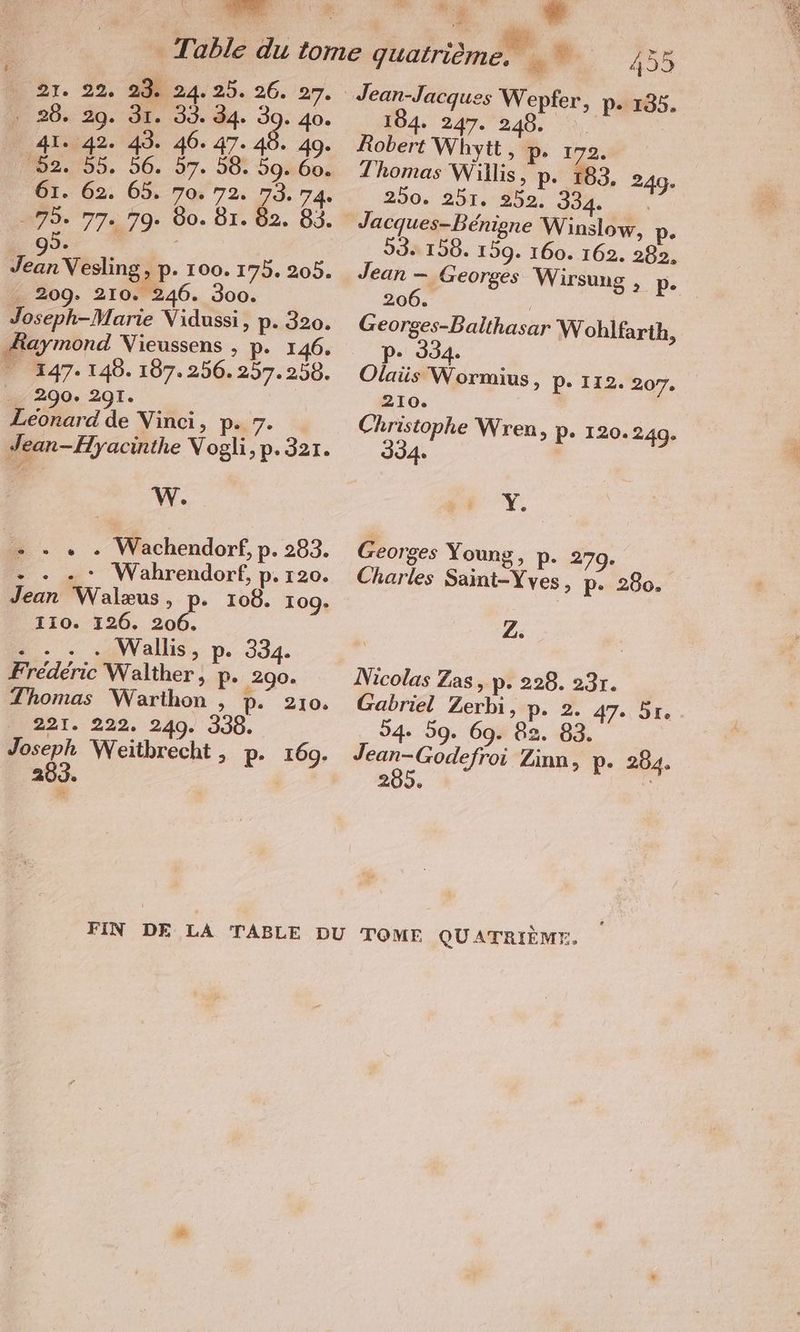 Table du tome quatrième. 455
21. 22. 23. 24. 25. 26. 27.
28. 29. 31. 33. 34. 39. 40.
41. 42. 43. 46. 47. 48. 49.
52. 55. 56. 57. 58. 59. 60.
61. 62. 65. 70. 72. 73. 74.
75. 77. 79. 80. 81. 82. 83.
95.
Jean Vesling, p. 100. 175. 205.
209. 210. 246. 300.
Joseph-Marie Vidussi, p. 320.
Raymond Vieussens, p. 146.
147. 148. 187. 256. 257. 258.
290. 291.
Léonard de Vinci, p. 7.
Jean-Hyacinthe Vogli, p. 321.
W.
. . . . Wachendorf, p. 283.
. . . . Wahrendorf, p. 120.
Jean Walæus, p. 108. 109.
110. 126. 206.
. . . . Wallis, p. 334.
Frédéric Walther, p. 290.
Thomas Warthon, p. 210.
221. 222. 249. 338.
Joseph Weitbrecht, p. 169.
283.
Jean-Jacques Wepfer, p. 135.
184. 247. 248.
Robert Whytt, p. 172.
Thomas Willis, p. 183. 249.
250. 251. 252. 334.
Jacques-Bénigne Winslow, p.
53. 158. 159. 160. 162. 282.
Jean-Georges Wirsung, p.
206.
Georges-Balthasar Wohlfarth,
p. 334.
Olaüs Wormius, p. 112. 207.
210.
Christophe Wren, p. 120. 249.
334.
Y.
Georges Young, p. 279.
Charles Saint-Yves, p. 280.
Z.
Nicolas Zas, p. 228. 231.
Gabriel Zerbi, p. 2. 47. 51.
54. 59. 69. 82. 83.
Jean-Godefroi Zinn, p. 284.
285.
FIN DE LA TABLE DU TOME QUATRIÈME.